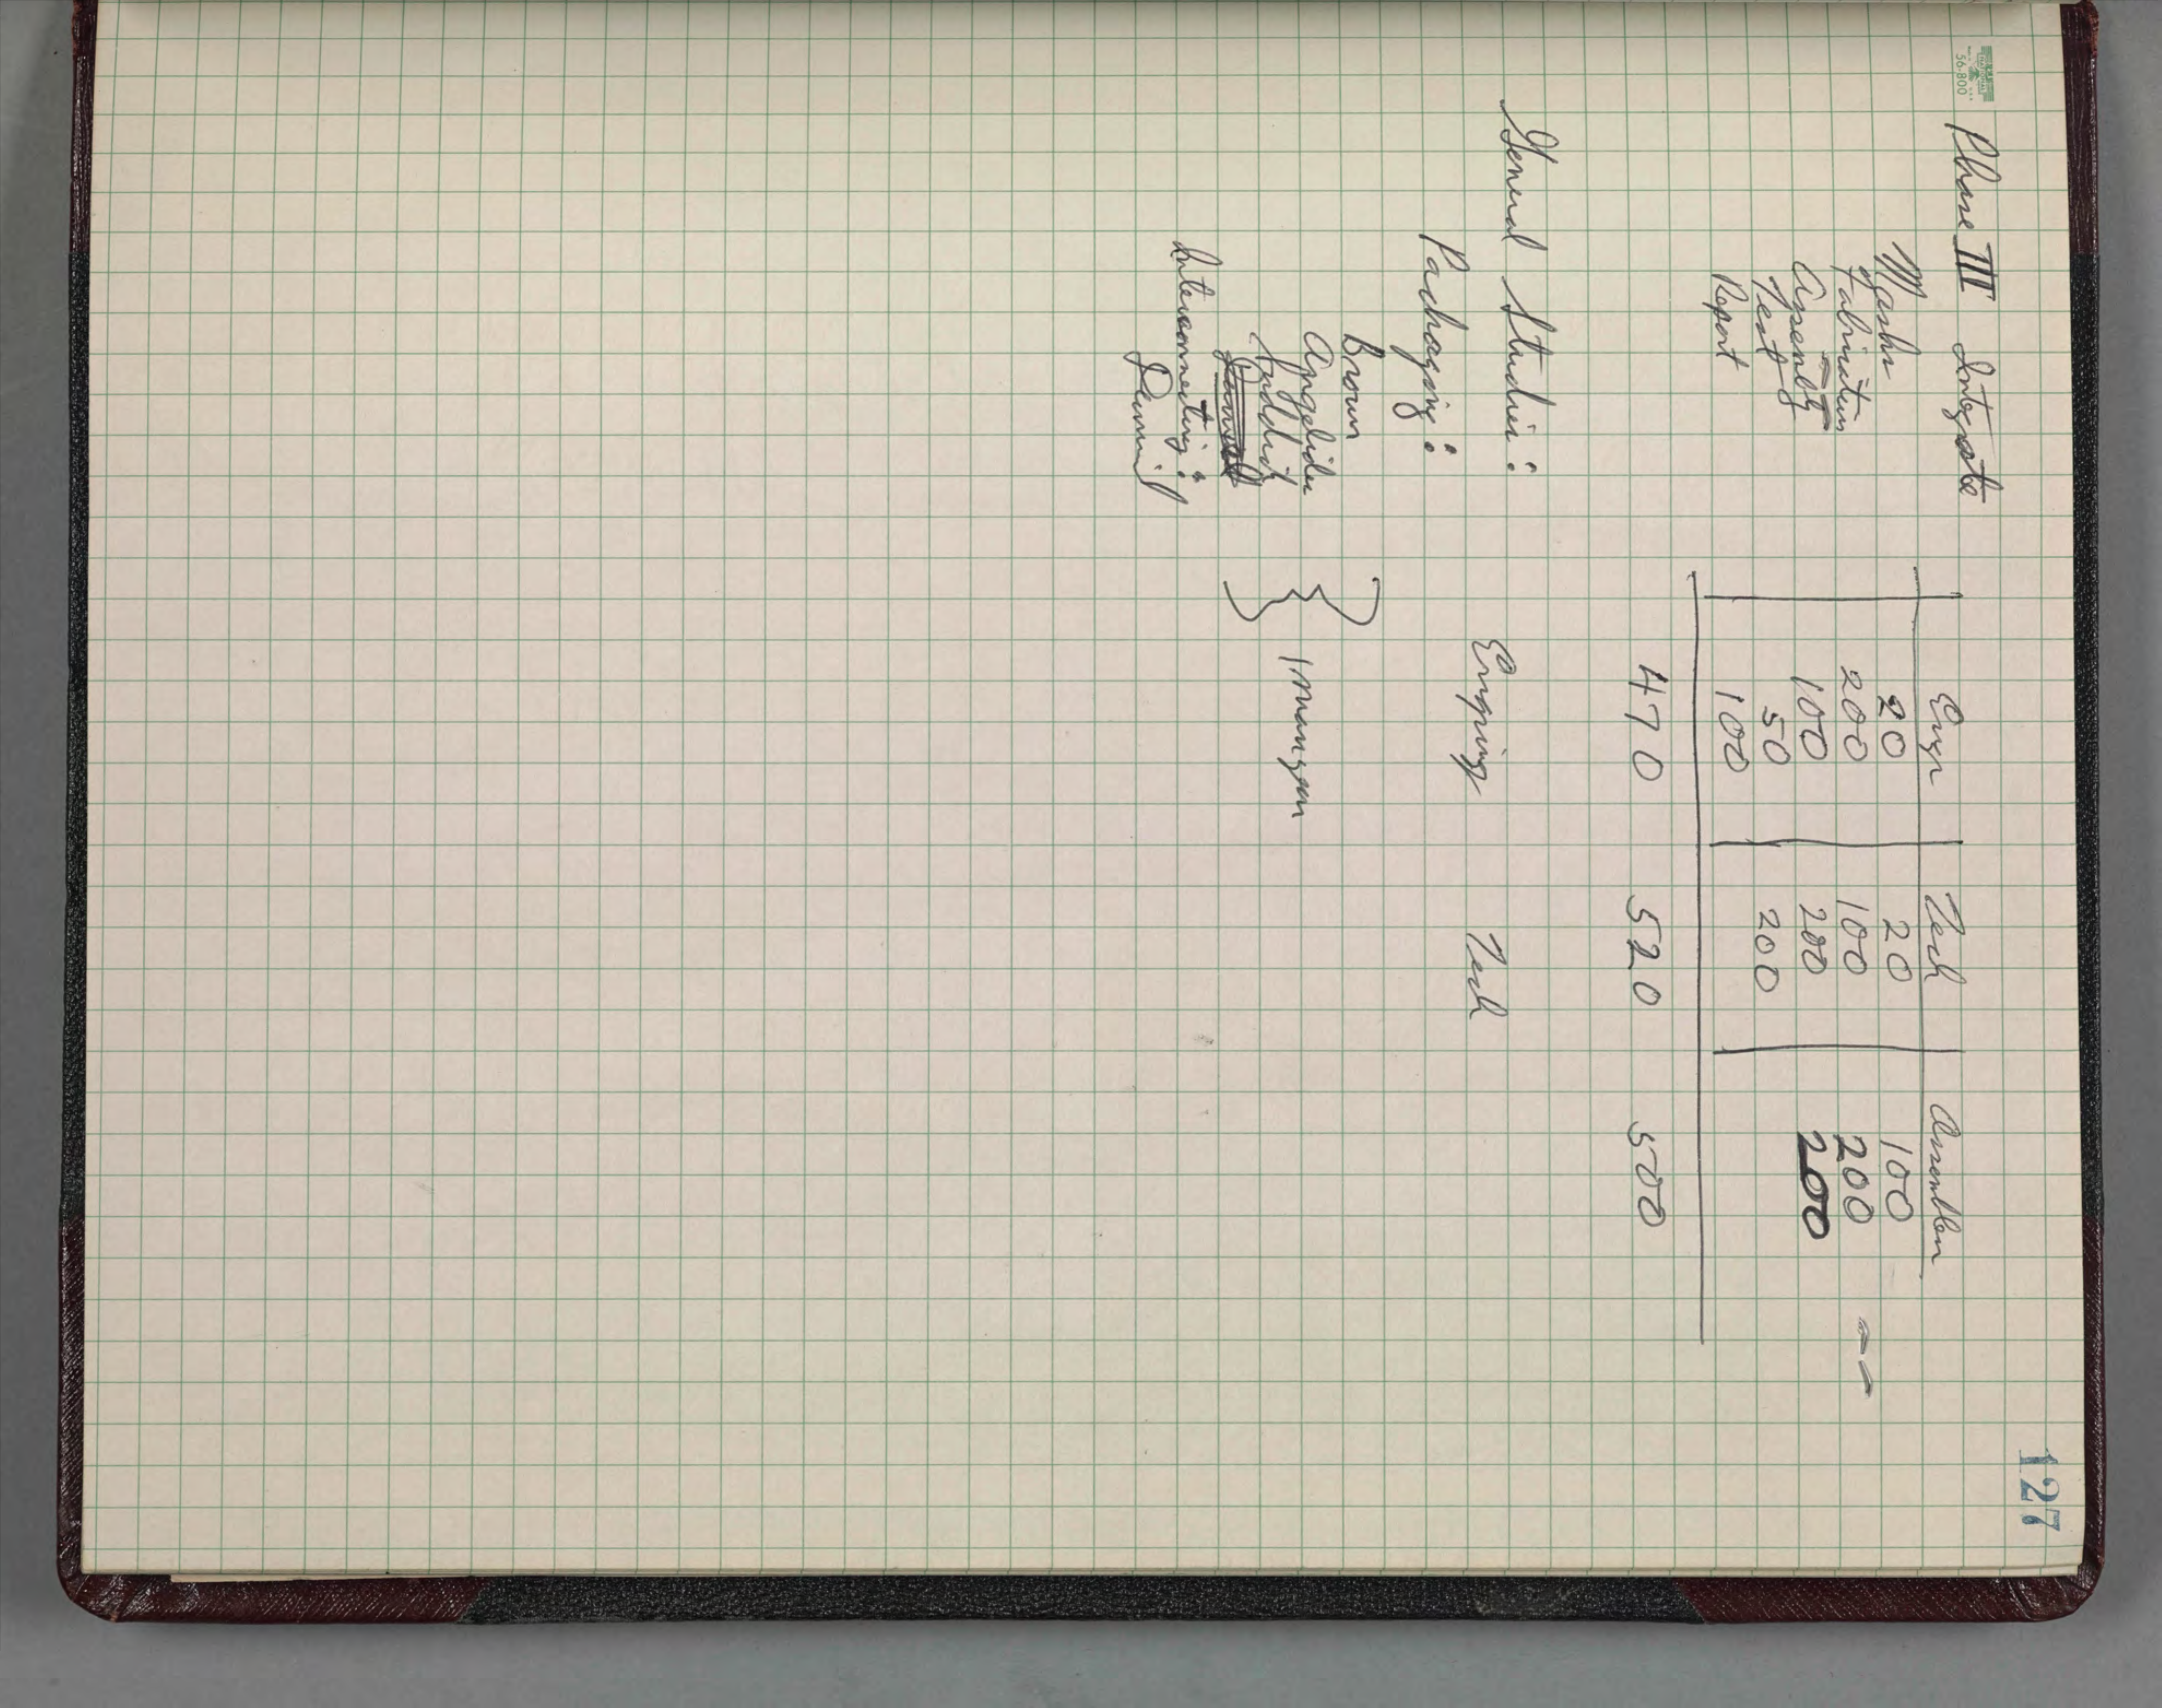 127
56-800
Phase III Integrate
Engr Tech Assembler
Masks 20 20 100
Fabrication 200 100 200
Assembly 100 200 200
Test 50 200
Report 100
470 520 500
General Studies:
Engring Tech
Packaging:
Brown
Angelides
1 man year
Interconnecting: